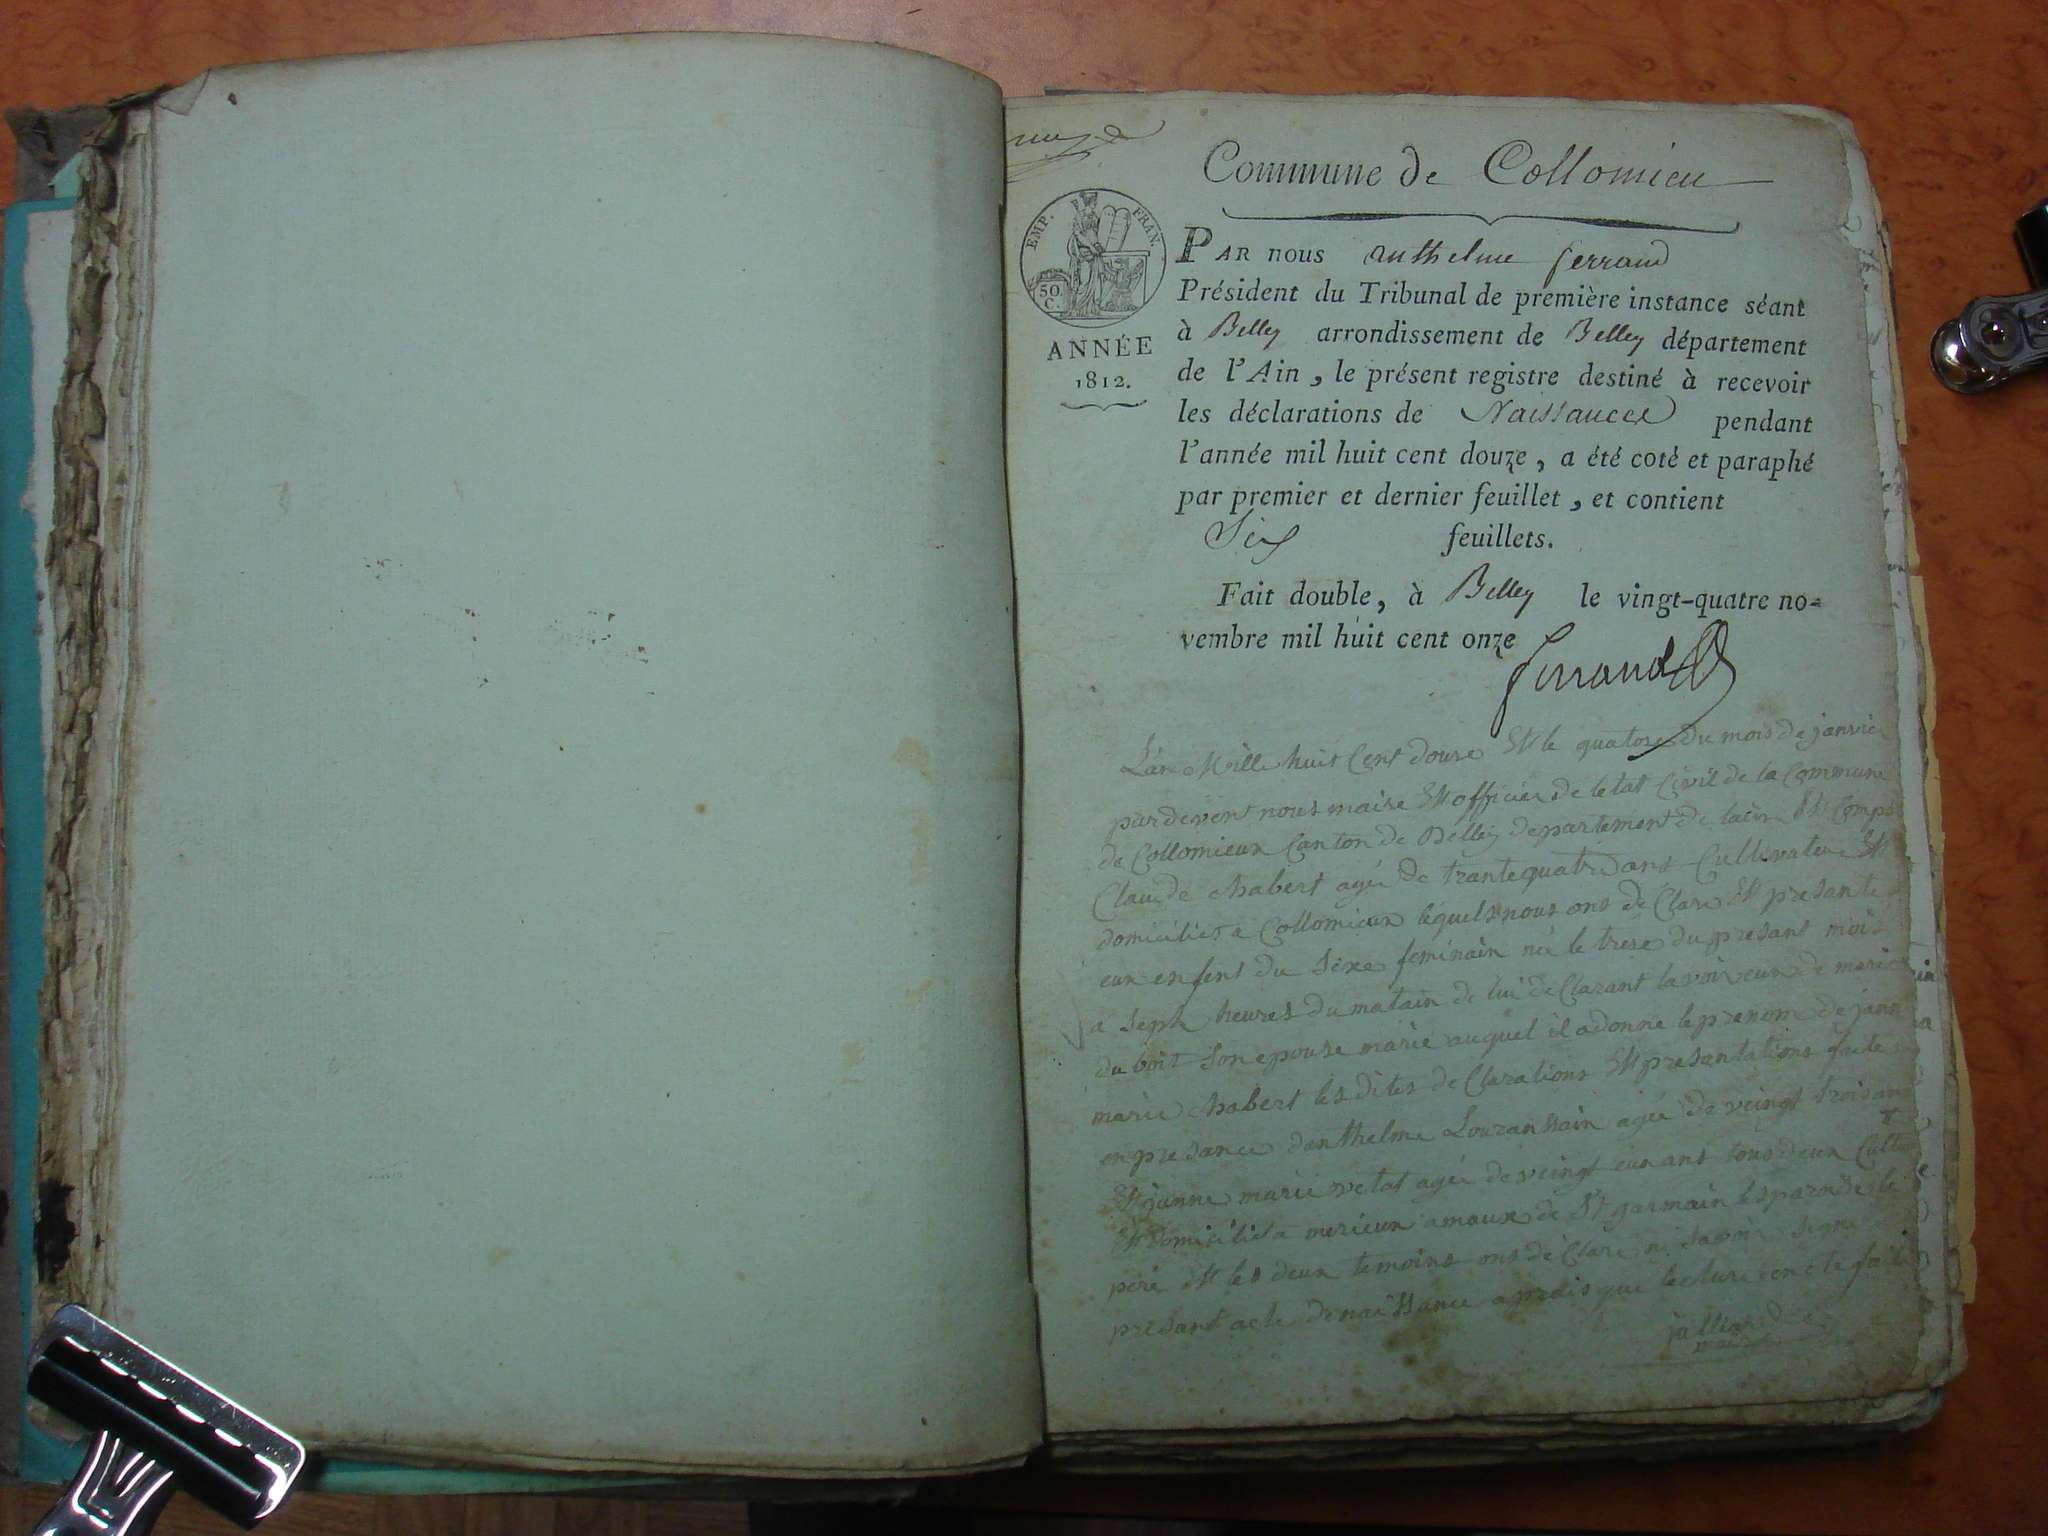 Commune de Collomieu
EMP. FRAN.
50 C.
ANNÉE
1812.
PAR nous anthelme ferrand
Président du Tribunal de première instance séant
à Belley arrondissement de Belley département
de l'Ain, le présent registre destiné à recevoir
les déclarations de Naissances pendant
l'année mil huit cent douze, a été coté et paraphé
par premier et dernier feuillet, et contient
Six feuillets.
Fait double, à Belley le vingt-quatre no-
vembre mil huit cent onze
ferrand
L'an Mille huit Cent douse Et le quatorse du mois de janvier
pardevent nous maire Et officier de letat Civil de la Commune
de Collomieux Canton de Belley departement de lain Et Comp
Claude Chabert agée de trantequatre ans Cultivateur Et
domicilies a Collomieux lequels nous ons de Clare Et presante
eun enfent du sexe feminain née le trese du presant mois
a seph heures du matain de lui de Clarant lavoir eun de marie
du boit son epouse marie auquel il a donne le prenom de jann
marie Chabert les dites de Clarations Et presantations faite
en presance danthelme Louranssain agée de veingt trois ans
Et janne marie vetat agée de veingt eun ans tous deux Cultiv
Et domicilies a merieux amaux de St garmain les paroisse le
pere Et les deux temoins ons de Clare ni savoir signe
presant acte de naissance aprais que lecture en ete faite
jallia
maire